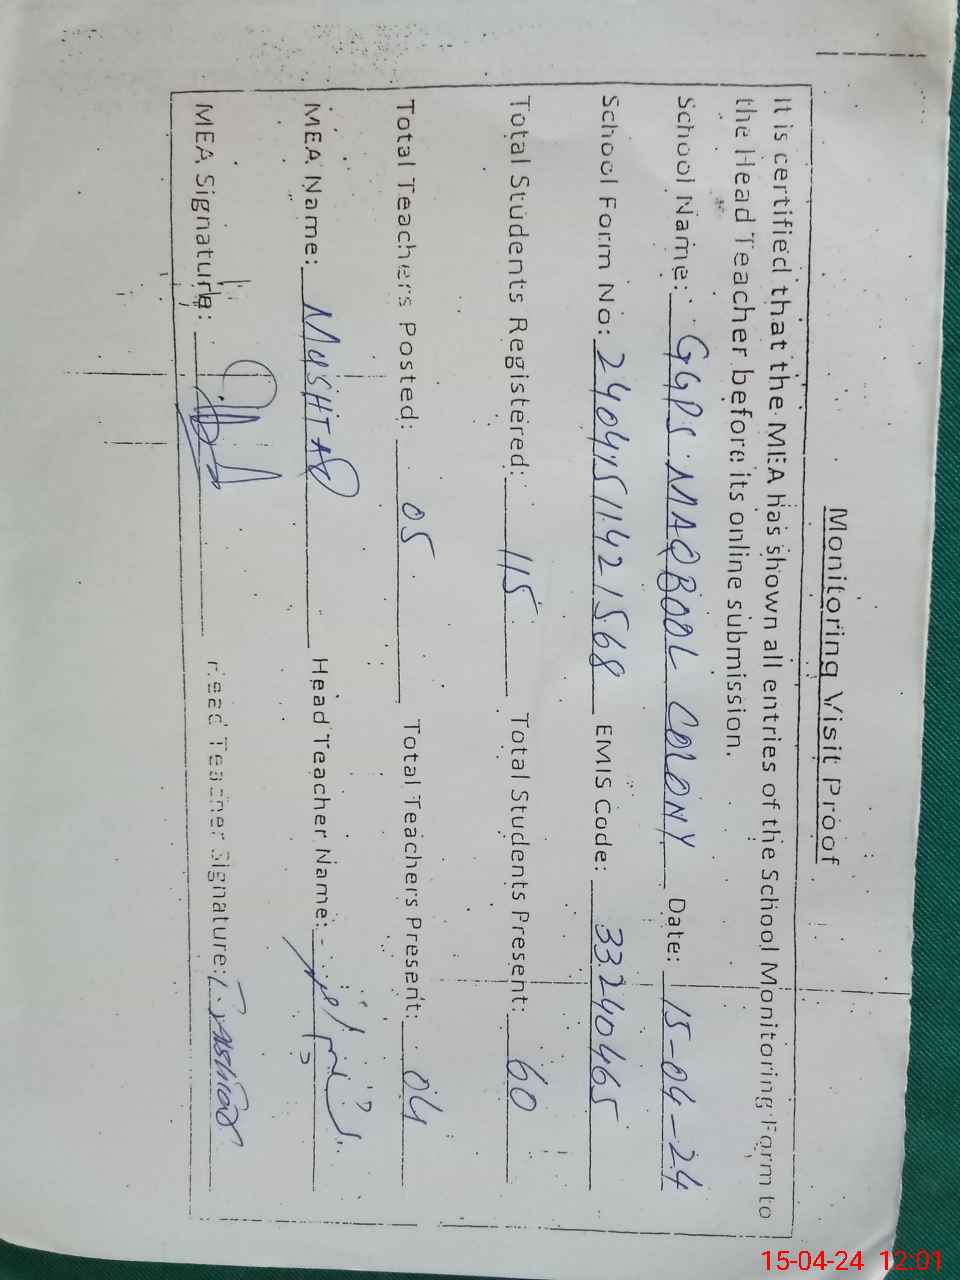 Monitoring Visit Proof
It is certified that the MEA has shown all entries of the School Monitoring Form to
the Head Teacher before its online submission.
School Name: GGPS MAQBOOL COLONY Date: 15-04-24
School Form No: EMIS Code: 33240465
Total Students Registered: 115 Total Students Present: 60
Total Teachers Posted: 05 Total Teachers Present: 04
MEA Name: MUSHTAQ Head Teacher Name:
MEA Signature: Head Teacher Signature:
15-04-24 12:01